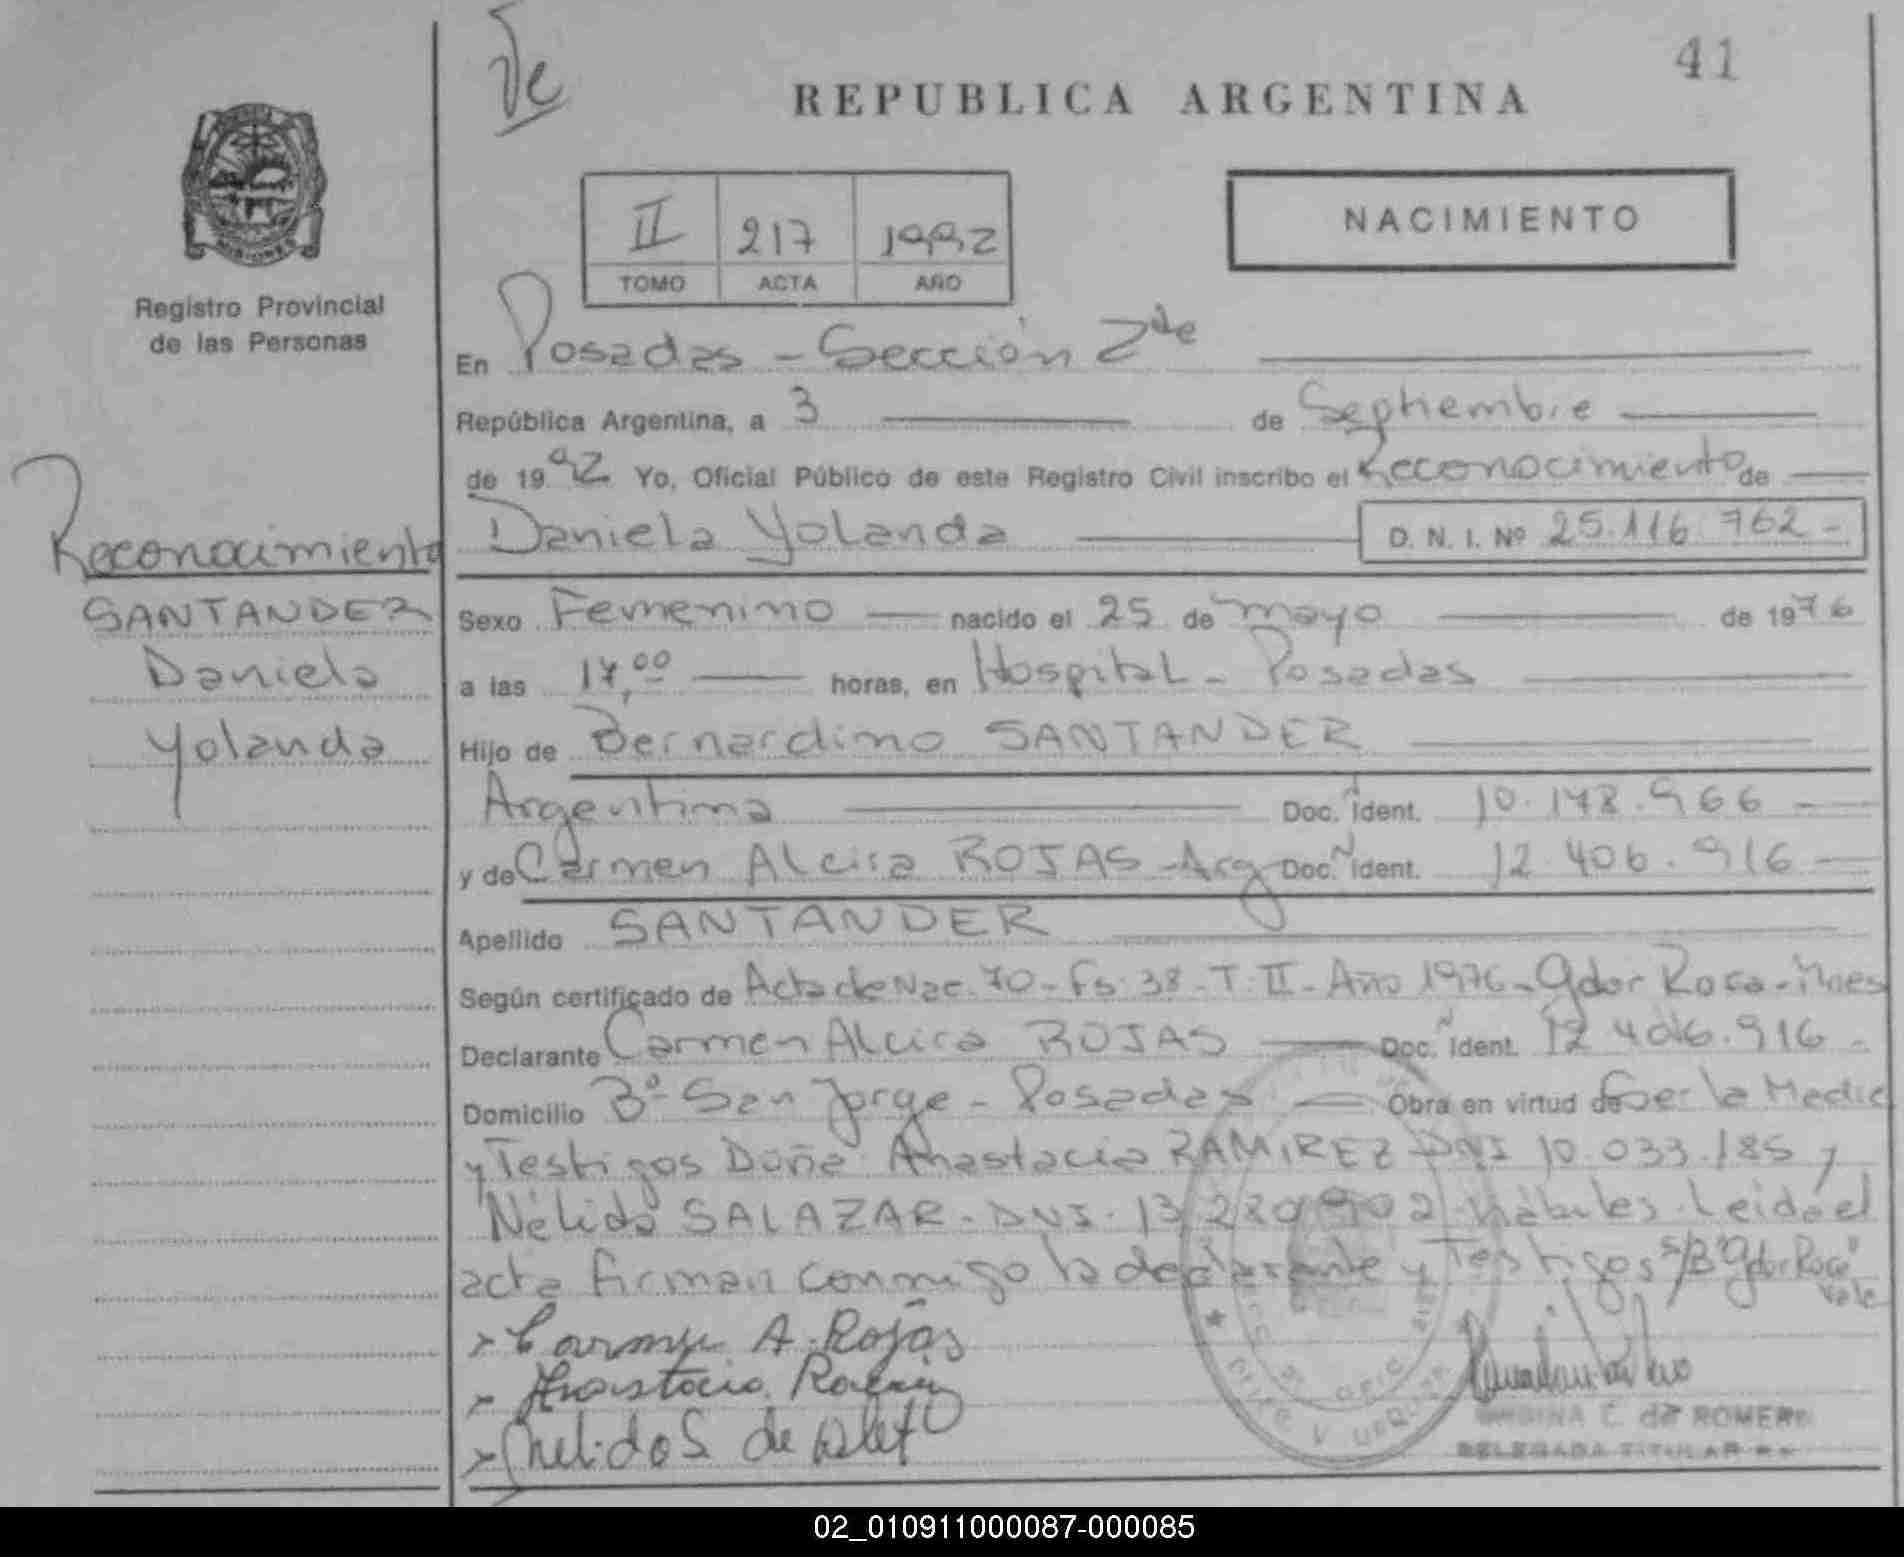 41
REPUBLICA ARGENTINA
II 217 1992
TOMO ACTA AÑO
NACIMIENTO
MISIONES
Registro Provincial
de las Personas
En Posadas - Sección 2da
República Argentina, a 3 de Septiembre
de 1992 Yo, Oficial Público de este Registro Civil inscribo el Reconocimiento de
Daniela Yolanda D. N. I. Nº 25.116.762-
Reconocimiento
SANTANDER
Daniela
Yolanda
Sexo Femenino nacido el 25 de mayo de 1976
a las 17,00 horas, en Hospital - Posadas
Hijo de Bernardino SANTANDER
Argentina Doc. Ident. 10.178.966
y de Carmen Alcira ROJAS - Arg Doc. Ident. 12.406.916
Apellido SANTANDER
Según certificado de Acta de Nac. 70 - Fs. 38 - T. II - Año 1976 - Gdor Roca - Mnes
Declarante Carmen Alcira ROJAS Doc. Ident. 12.406.916 -
Domicilio Bº San Jorge - Posadas Obra en virtud de Ser la Madre
y Testigos Doña Anastacia RAMIREZ DNI 10.033.185 y
Nélida SALAZAR - DNI - 13.280.902 hábiles. Leida el
acta firman conmigo la declarante y Testigos s/B "Gdor Roca"
vale
Carmen A. Rojas
Nelida S de
C. de ROMERO
DELEGADA TITULAR
02_010911000087-000085